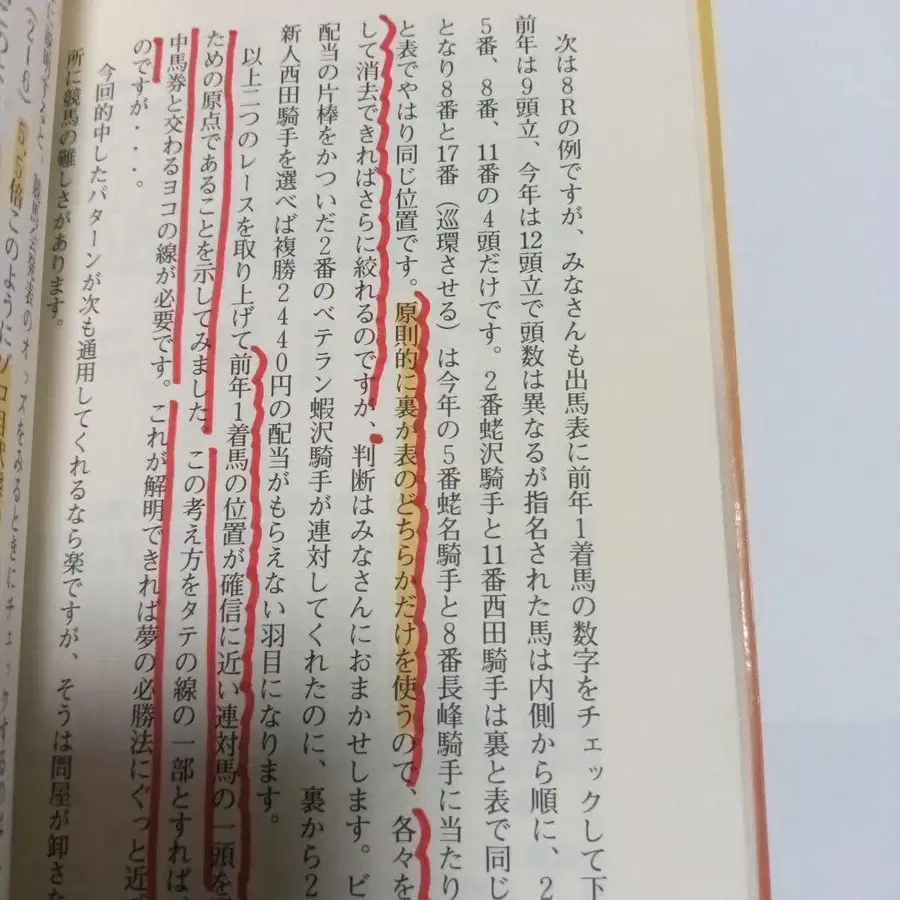 次は8Rの例ですが、みなさんも出馬表に前年1着馬の数字をチェックして下
前年は9頭立、今年は12頭立で頭数は異なるが指名された馬は内側から順に、2
5番、8番、11番の4頭だけです。2番蛯沢騎手と11番西田騎手は裏と表で同じ
となり8番と17番（巡環させる）は今年の5番蛯名騎手と8番長峰騎手に当たり
と表でやはり同じ位置です。原則的に裏か表のどちらかだけを使うので、各々を
して消去できればさらに絞れるのですが、判断はみなさんにおまかせします。ビ
配当の片棒をかついだ2番のベテラン蝦沢騎手が連対してくれたのに、裏から2
新人西田騎手を選べば複勝2440円の配当がもらえない羽目になります。
以上二つのレースを取り上げて前年1着馬の位置が確信に近い連対馬の一頭を
ための原点であることを示してみました。この考え方をタテの線の一部とすれば
中馬券と交わるヨコの線が必要です。これが解明できれば夢の必勝法にぐっと近
のですが・・・。
今回的中したパターンが次も通用してくれるなら楽ですが、そうは問屋が卸さな
所に競馬の難しさがあります。
発表のオッズをみるときにチェックする
5.5倍このように
(2-6)